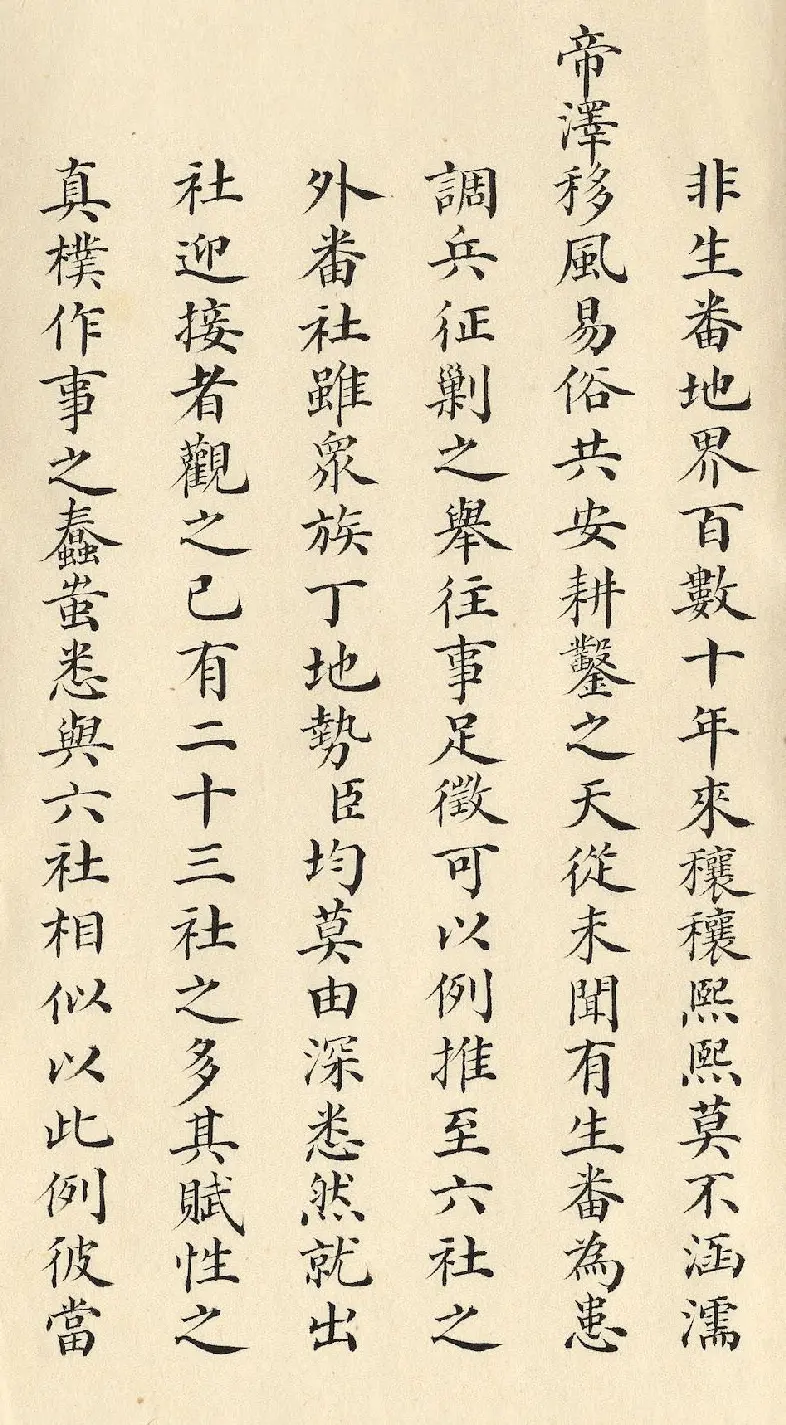 非生番地界百數十年來穰穰熙熙莫不涵濡
帝澤移風易俗共安耕鑿之天從未聞有生番為患
調兵征剿之舉往事足徵可以例推至六社之
外番社雖眾族丁地勢臣均莫由深悉然就出
社迎接者觀之已有二十三社之多其賦性之
真樸作事之蠢蚩悉與六社相似以此例彼當